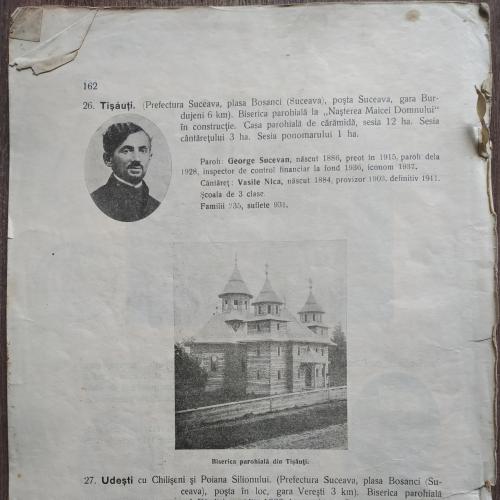 162
26. Tişăuţi. (Prefectura Suceava, plasa Bosanci (Suceava), poşta Suceava, gara Bur-
dujeni 6 km). Biserica parohială la „Naşterea Maicei Domnului"
în construcţie. Casa parohială de cărămidă, sesia 12 ha. Sesia
cântăreţului 3 ha. Sesia ponomarului 1 ha.
Paroh: George Sucevan, născut 1886, preot în 1915, paroh dela
1928, inspector de control financiar la fond 1936, iconom 1937.
Cântăreţ: Vasile Nica, născut 1884, provizor 1903, definitiv 1911.
Şcoala de 3 clase.
Familii 235, suflete 931.
Biserica parohială din Tişăuţi.
27. Udeşti cu Chilişeni şi Poiana Silionului. (Prefectura Suceava, plasa Bosanci (Su-
ceava), poşta în loc, gara Vereşti 3 km). Biserica parohială